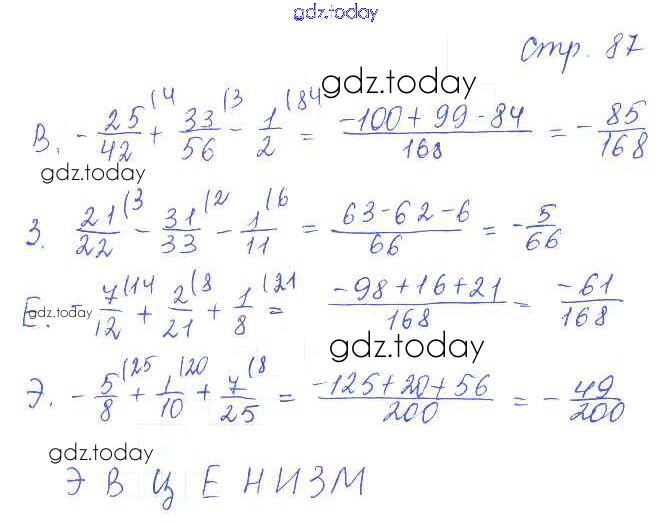 gdz.today
стр. 87
gdz.today
В. - 25/42 (4 + 33/56 (3 - 1/2 (84 = -100 + 99 - 84 / 168 = - 85/168
gdz.today
З. 21/22 (3 - 31/33 (2 - 1/11 (6 = 63 - 62 - 6 / 66 = - 5/66
gdz.today
Е. - 7/12 (14 + 2/21 (8 + 1/8 (21 = -98 + 16 + 21 / 168 = -61/168
gdz.today
Э. - 5/8 (25 + 1/10 (20 + 7/25 (8 = -125 + 20 + 56 / 200 = - 49/200
gdz.today
Э В Ц Е Н И З М